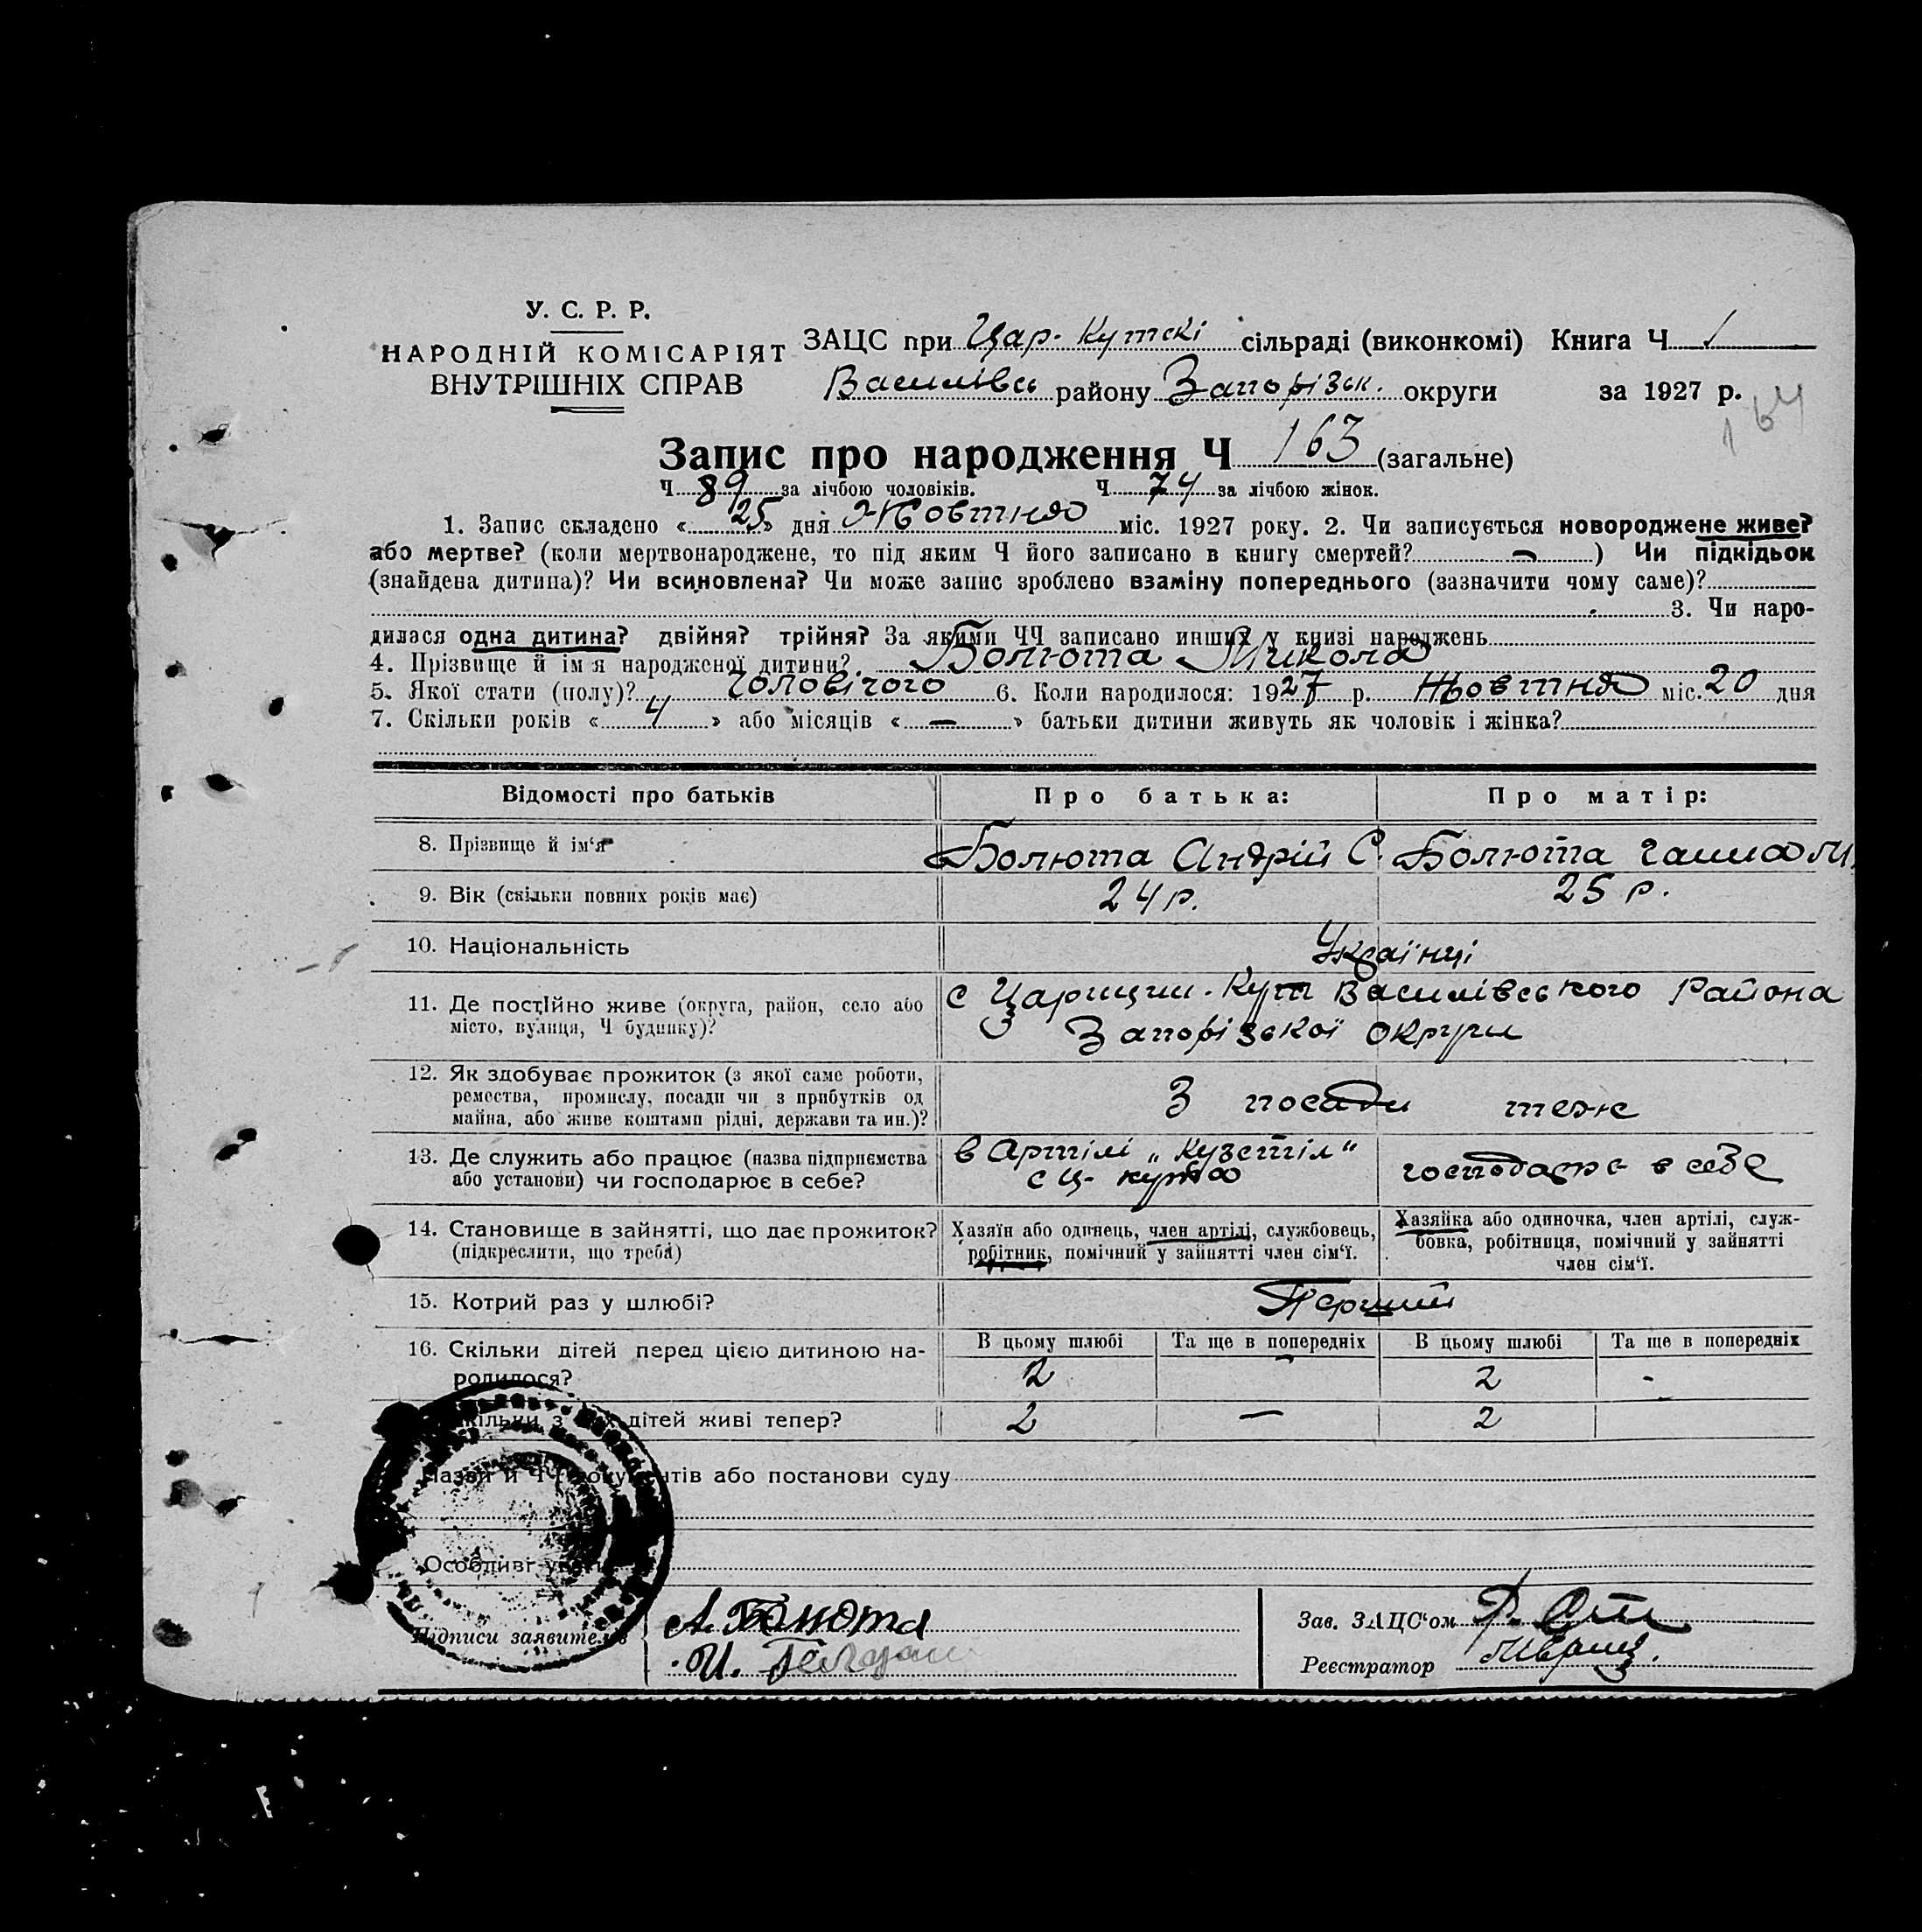 У. С. Р. Р.
НАРОДНІЙ КОМІСАРІЯТ
ВНУТРІШНІХ СПРАВ
ЗАЦС при Цар.-Кутскі сільраді (виконкомі) Книга Ч 1
Василівсь району Запорізьк. округи за 1927 р.
164
Запис про народження Ч 163 (загальне)
Ч 89 за лічбою чоловіків. Ч 74 за лічбою жінок.
1. Запис складено « 25 » дня Жовтня міс. 1927 року. 2. Чи записується новороджене живе?
або мертве? (коли мертвонароджене, то під яким Ч його записано в книгу смертей? — ) Чи підкідьок
(знайдена дитина)? Чи всиновлена? Чи може запис зроблено взаміну попереднього (зазначити чому саме)?
3. Чи наро-
дилася одна дитина? двійня? трійня? За якими ЧЧ записано инших у книзі народжень
4. Прізвище й ім'я народженої дитини? Болюта Микола
5. Якої стати (полу)? Чоловічого 6. Коли народилося: 1927 р. Жовтня міс. 20 дня
7. Скільки років « 4 » або місяців « — » батьки дитини живуть як чоловік і жінка?
Відомості про батьків Про батька: Про матір:
8. Прізвище й ім'я Болюта Андрій С. Болюта Ганна М.
9. Вік (скільки повних років має) 24 р. 25 р.
10. Національність Українці
11. Де постійно живе (округа, район, село або с Царицин-Кут Василівського Района
місто, вулиця, Ч будинку)? Запорізької округи
12. Як здобуває прожиток (з якої саме роботи,
ремества, промислу, посади чи з прибутків од З посади теж
майна, або живе коштами рідні, держави та ин.)?
13. Де служить або працює (назва підприємства в Артілі „Кузетіл“ господарює в себе
або установи) чи господарює в себе? с Ц- кута
14. Становище в зайнятті, що дає прожиток? Хазяїн або одинець, член артілі, службовець, Хазяйка або одиночка, член артілі, служ-
(підкреслити, що треба) робітник, помічний у зайнятті член сім'ї. бовка, робітниця, помічний у зайнятті
член сім'ї.
15. Котрий раз у шлюбі? Перший
16. Скільки дітей перед цією дитиною на- В цьому шлюбі Та ще в попередніх В цьому шлюбі Та ще в попередніх
родилося? 2 - 2 -
дітей живі тепер? 2 — 2
або постанови суду
Особливі
Підписи заявителів А. Болюта Зав. ЗАЦС'ом
И. Реєстратор